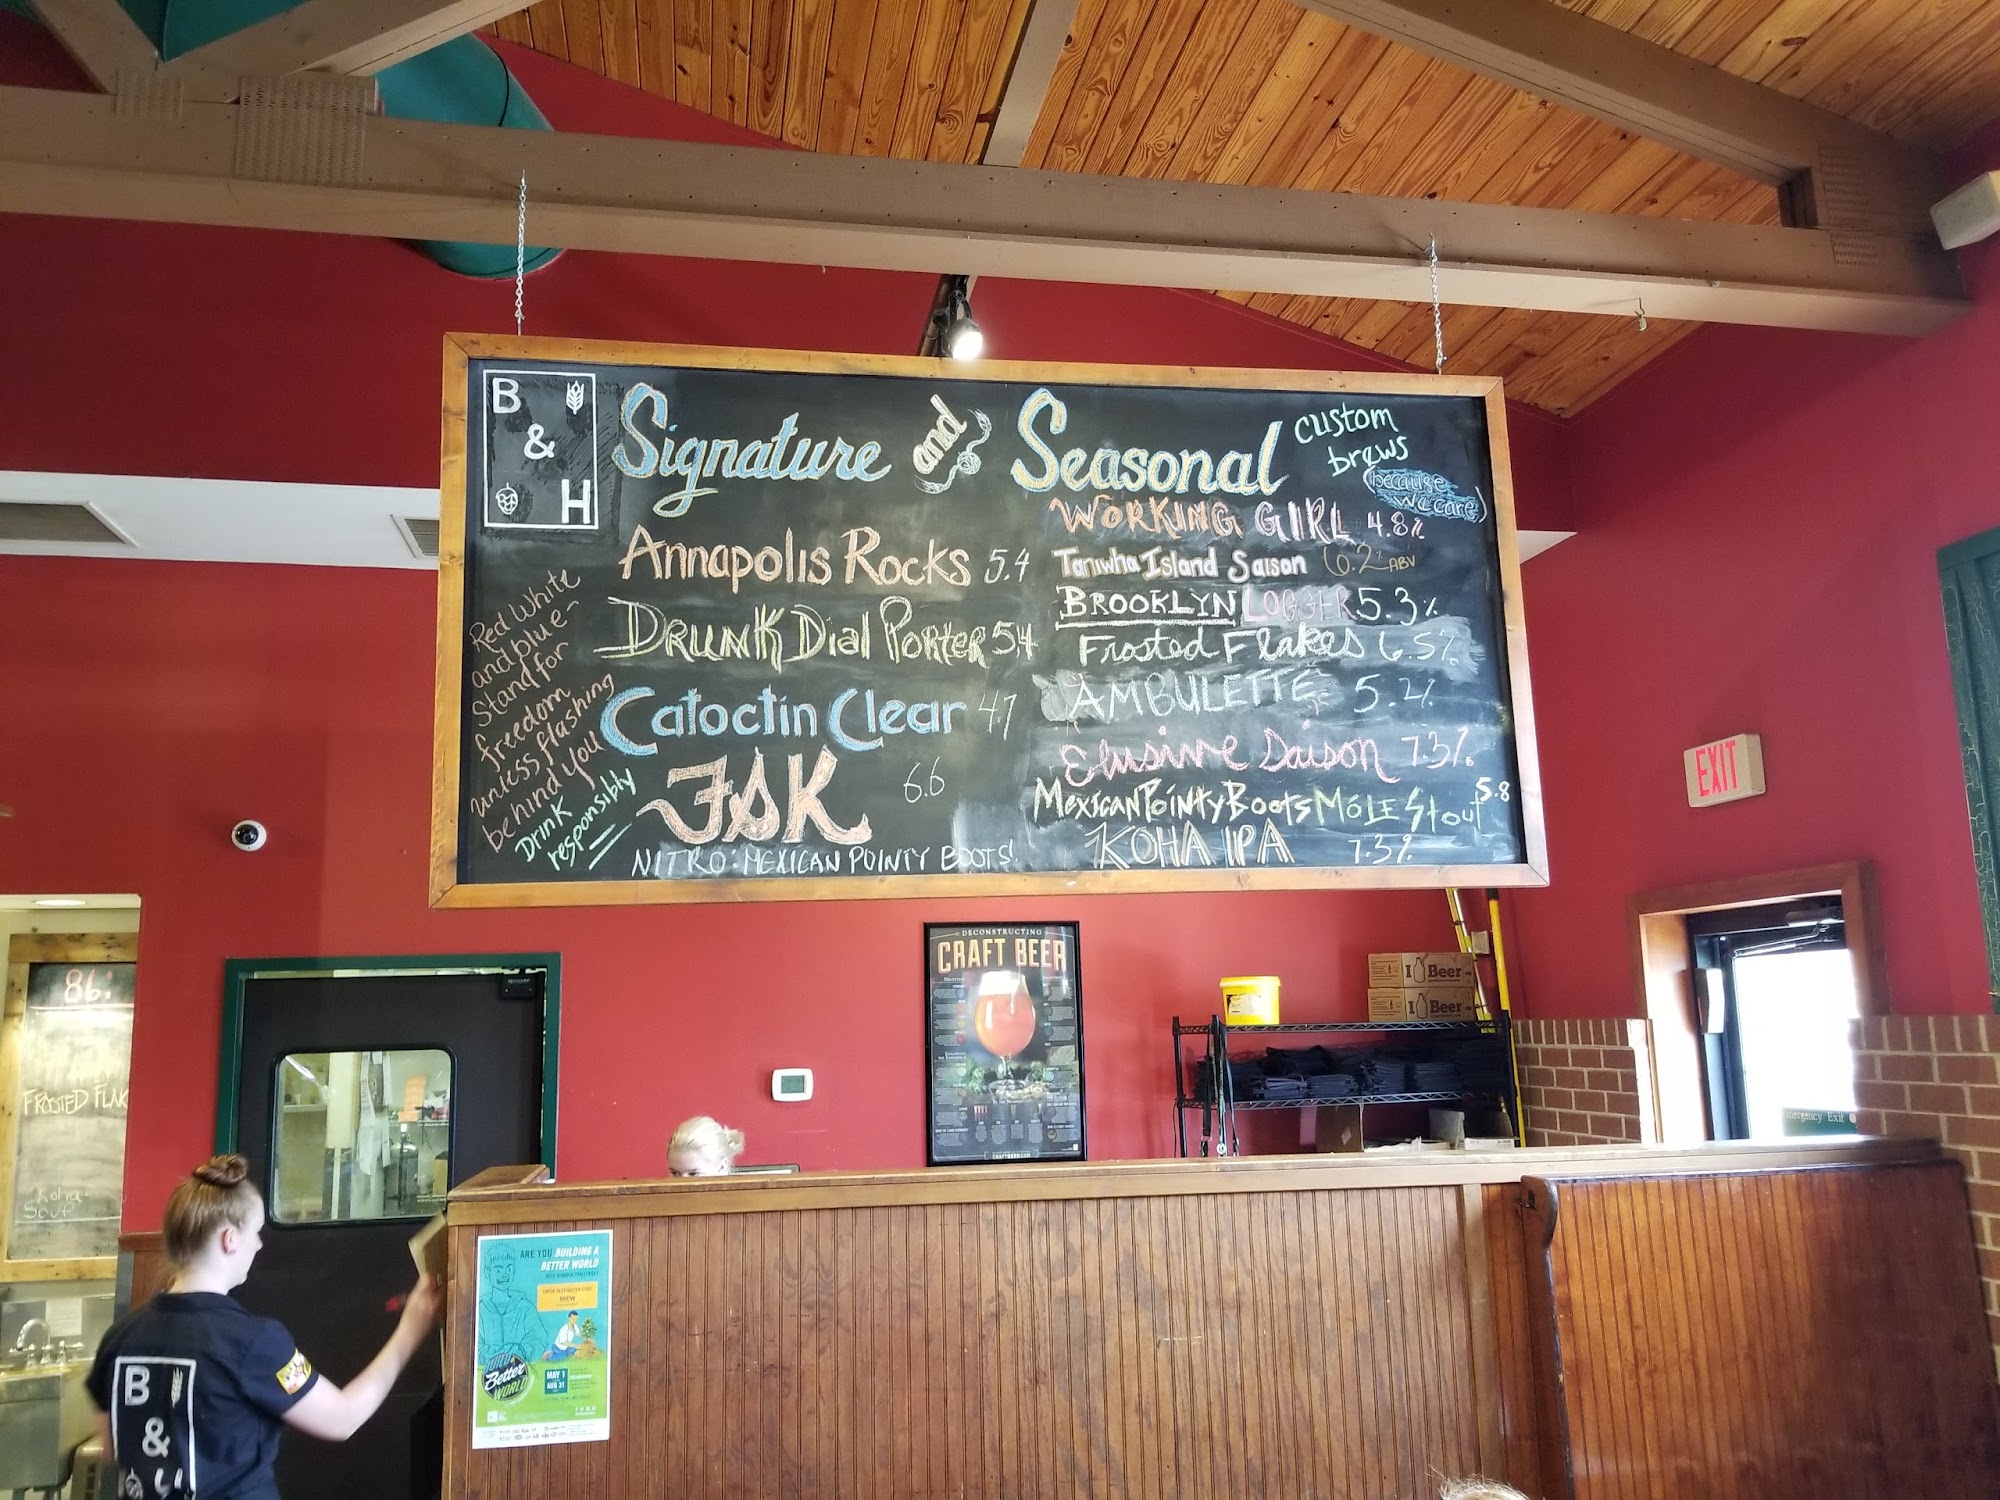 B
&
H
Signature and Seasonal
custom
brews
(because
we care)
Annapolis Rocks 5.4
Drunk Dial Porter 5.4
Catoctin Clear 4.7
FSK 6.6
NITRO: MEXICAN POINTY BOOTS!
WORKING GIRL 4.8%
Taniwha Island Saison 6.2% ABV
BROOKLYN LOGGER 5.3%
Frosted Flakes 6.5%
AMBULETTE 5.2%
Elusive Saison 7.3%
Mexican Pointy Boots Mole Stout 5.8
KOHA IPA 7.3%
Red White
and blue-
Stand for
freedom
unless flashing
behind you
Drink
responsibly
EXIT
DECONSTRUCTING
CRAFT BEER
CRAFTBEER.COM
I Beer
I Beer
Emergency Exit
86:
FROSTED FLAK
Koha
B
&
ARE YOU BUILDING A
BETTER WORLD
BREW
BUILD a
Better
WORLD
MAY 1
AUG 31